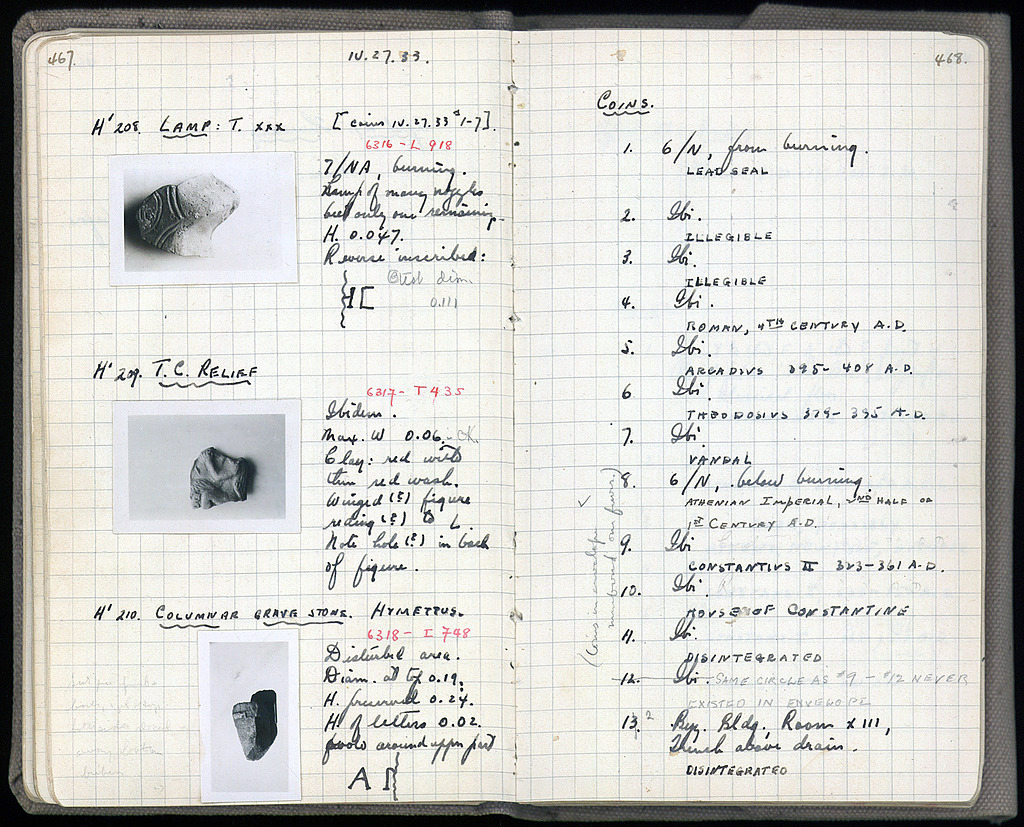 467.
IV. 27. 33.
H' 208. LAMP: T. XXX
[coins IV. 27. 33 #1-7].
6316 - L 918
7/NA, burning.
Lamp of many nozzles
but only one remaining.
H. 0.047.
Reverse inscribed:
est diam.
0.111
H' 209. T. C. RELIEF
6317 - T 435
Ibidem.
Max. W 0.06.
Clay: red with
thin red wash.
Winged (?) figure
riding (?) to L.
Note hole (?) in back
of figure.
H' 210. COLUMNAR GRAVE STONE. HYMETTUS.
6318 - I 748
Disturbed area.
Diam. at top 0.19.
H. preserved 0.24.
H. of letters 0.02.
around upper part
468.
COINS.
1. 6/N, from burning.
LEAD SEAL
2. Ibi.
ILLEGIBLE
3. Ibi.
ILLEGIBLE
4. Ibi.
ROMAN, 4TH CENTURY A.D.
5. Ibi.
ARCADIUS 395-408 A.D.
6 Ibi.
THEODOSIUS 379-395 A.D.
7. Ibi.
VANDAL
8. 6/N, below burning.
ATHENIAN IMPERIAL, 2ND HALF OF
1ST CENTURY A.D.
9. Ibi
CONSTANTIUS II 323-361 A.D.
10. Ibi.
HOUSE OF CONSTANTINE
11. Ibi.
DISINTEGRATED
12. Ibi. SAME CIRCLE AS #9 - #12 NEVER
EXISTED IN ENVELOPE
13. 2 Byz. Bldg, Room XIII,
Trench above drain.
DISINTEGRATED
(Coins in envelope
numbered on